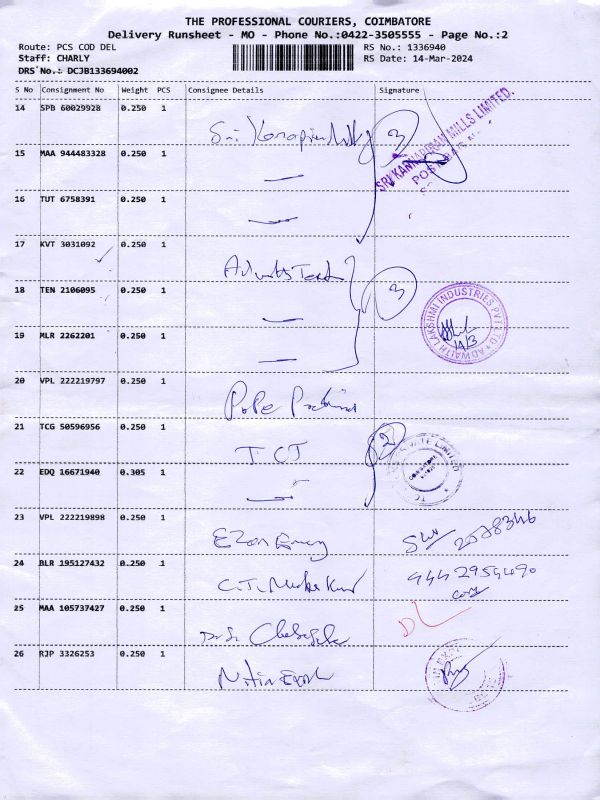 THE PROFESSIONAL COURIERS, COIMBATORE
Delivery Runsheet - MO - Phone No.:0422-3505555 - Page No.:2
Route: PCS COD DEL
RS No.: 1336940
Staff: CHARLY
RS Date: 14-Mar-2024
DRS No.: DCJB133694002
S No Consignment No Weight PCS Consignee Details Signature
14 SPB 60029928 0.250 1
Sri 3
SRI KANNAPIRAN MILLS LIMITED.
15 MAA 944483328 0.250 1
16 TUT 6758391 0.250 1
17 KVT 3031092 0.250 1
18 TEN 2106095 0.250 1
3
ADWAITH LAKSHMI INDUSTRIES PVT LTD
14/3
19 MLR 2262201 0.250 1
20 VPL 222219797 0.250 1
21 TCG 50596956 0.250 1
TCT 2
22 EDQ 16671940 0.305 1
23 VPL 222219898 0.250 1
24 BLR 195127432 0.250 1
25 MAA 105737427 0.250 1
26 RJP 3326253 0.250 1
Nitin